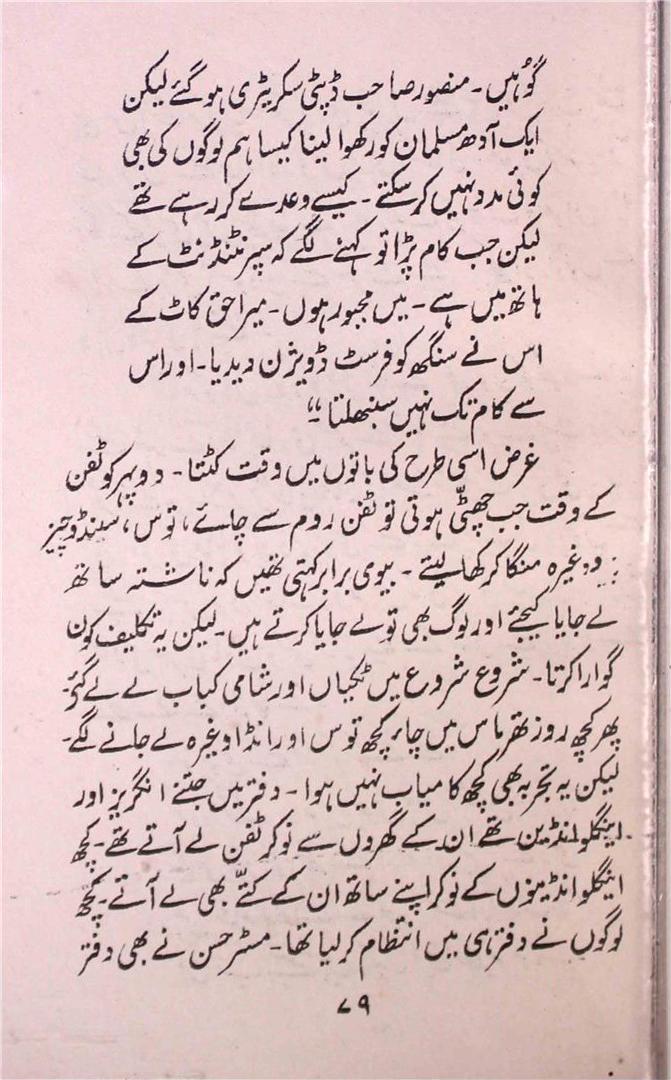 گوُہیں۔ منصور صاحب ڈپٹی سکریٹری ہوگئے لیکن
ایک آدھ مسلمان کو رکھوا لینا کیسا ہم لوگوں کی بھی
کوئی مدد نہیں کر سکتے۔ کیسے وعدے کر رہے تھے
لیکن جب کام پڑا تو کہنے لگے کہ سپرنٹنڈنٹ کے
ہاتھ میں ہے۔ میں مجبور ہوں۔ میرا حق کاٹ کے
اس نے سنگھ کو فرسٹ ڈویژن دیدیا۔ اور اس
سے کام تک نہیں سنبھلتا۔“
غرض اسی طرح کی باتوں میں وقت کٹتا۔ دوپہر کو ٹفن
کے وقت جب چھٹّی ہوتی تو ٹفن روم سے چائے، توس، سینڈوچیز
وغیرہ منگا کر کھا لیتے۔ بیوی برابر کہتی تھیں کہ ناشتہ ساتھ
لے جایا کیجئے اور لوگ بھی تو لے جایا کرتے ہیں۔ لیکن یہ تکلیف کون
گوارا کرتا۔ شروع شروع میں ٹکیاں اور شامی کباب لے لے گئے۔
پھر کچھ روز تھرماس میں چاء، کچھ توس اور انڈا وغیرہ لے جانے لگے۔
لیکن یہ تجربہ بھی کچھ کامیاب نہیں ہوا۔ دفتر میں جتنے انگریز اور
اینگلو انڈین تھے ان کے گھروں سے نوکر ٹفن لے آتے تھے۔ کچھ
اینگلو انڈینوں کے نوکر اپنے ساتھ ان کے کتّے بھی لے آتے۔ کچھ
لوگوں نے دفتر ہی میں انتظام کر لیا تھا۔ مسٹر حسن نے بھی دفتر
۷۹